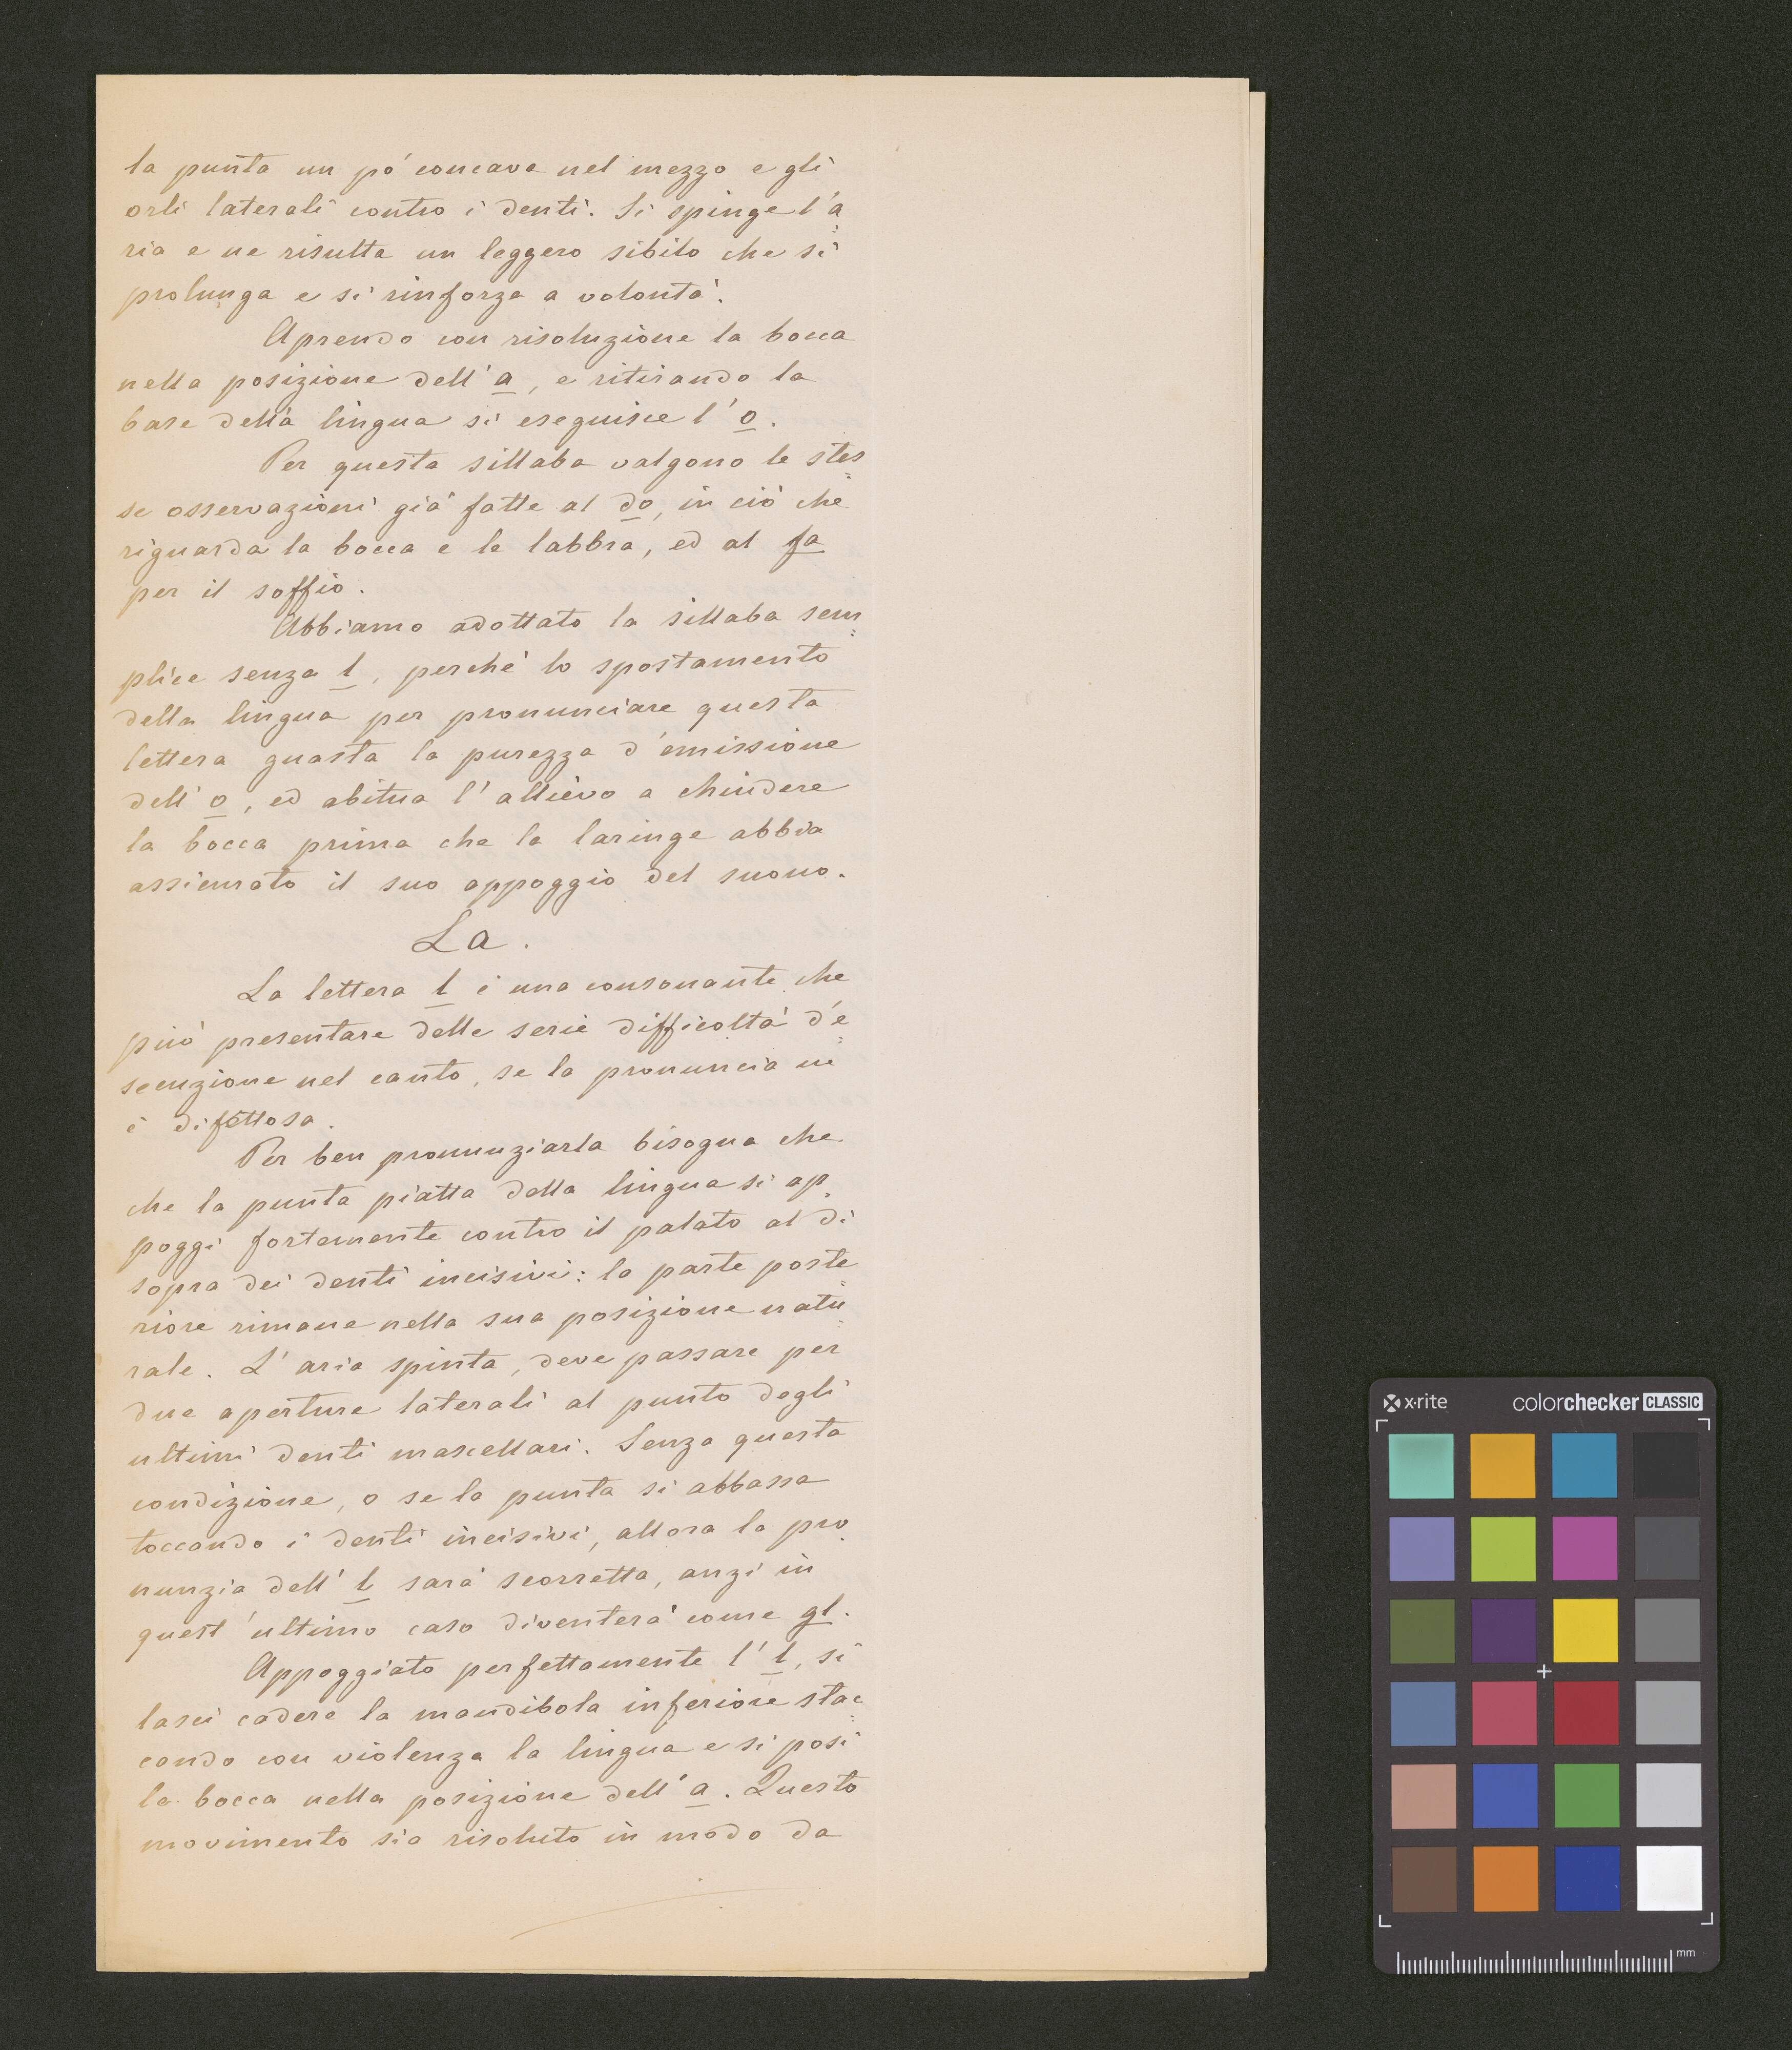 la punta un pó concava nel mezzo e gli
orli laterali contro i denti. Si spinge l'a=
ria e ne risulta un leggero sibilo che si
prolunga e si rinforza a volontà.
Aprendo con risoluzione la bocca
nella posizione dell'a, e ritirando la
base della lingua si eseguisce l'o.
Per questa sillaba valgono le stes=
se osservazioni già fatte al do, in ciò che
riguarda la bocca e le labbra, ed al fa
per il soffio.
Abbiamo adottato la sillaba sem=
plice senza l, perchè lo spostamento
della lingua per pronunciare questa
lettera guasta la purezza d'emissione
dell'o, ed abitua l'allievo a chiudere
la bocca prima che la laringe abbia
assicurato il suo appoggio del suono.
La.
La lettera l è una consonante che
può presentare delle serie difficoltà d'e=
secuzione nel canto, se la pronuncia ne
è difettosa.
Per ben pronunziarla bisogna che
che la punta piatta della lingua si ap=
poggi fortemente contro il palato al di
sopra dei denti incisivi: la parte poste=
riore rimane nella sua posizione natu=
rale. L'aria spinta, deve passare per
due aperture laterali al punto degli
ultimi denti mascellari. Senza questa
condizione, o se la punta si abbassa
toccando i denti incisivi, allora la pro=
nunzia dell'l sarà scorretta, anzi in
quest'ultimo caso diventerà come gl.
Appoggiato perfettamente l'l, si
lasci cadere la mandibola inferiore stac=
cando con violenza la lingua e si posi
la bocca nella posizione dell'a. Questo
movimento sia risoluto in modo da
x·rite colorchecker CLASSIC
mm